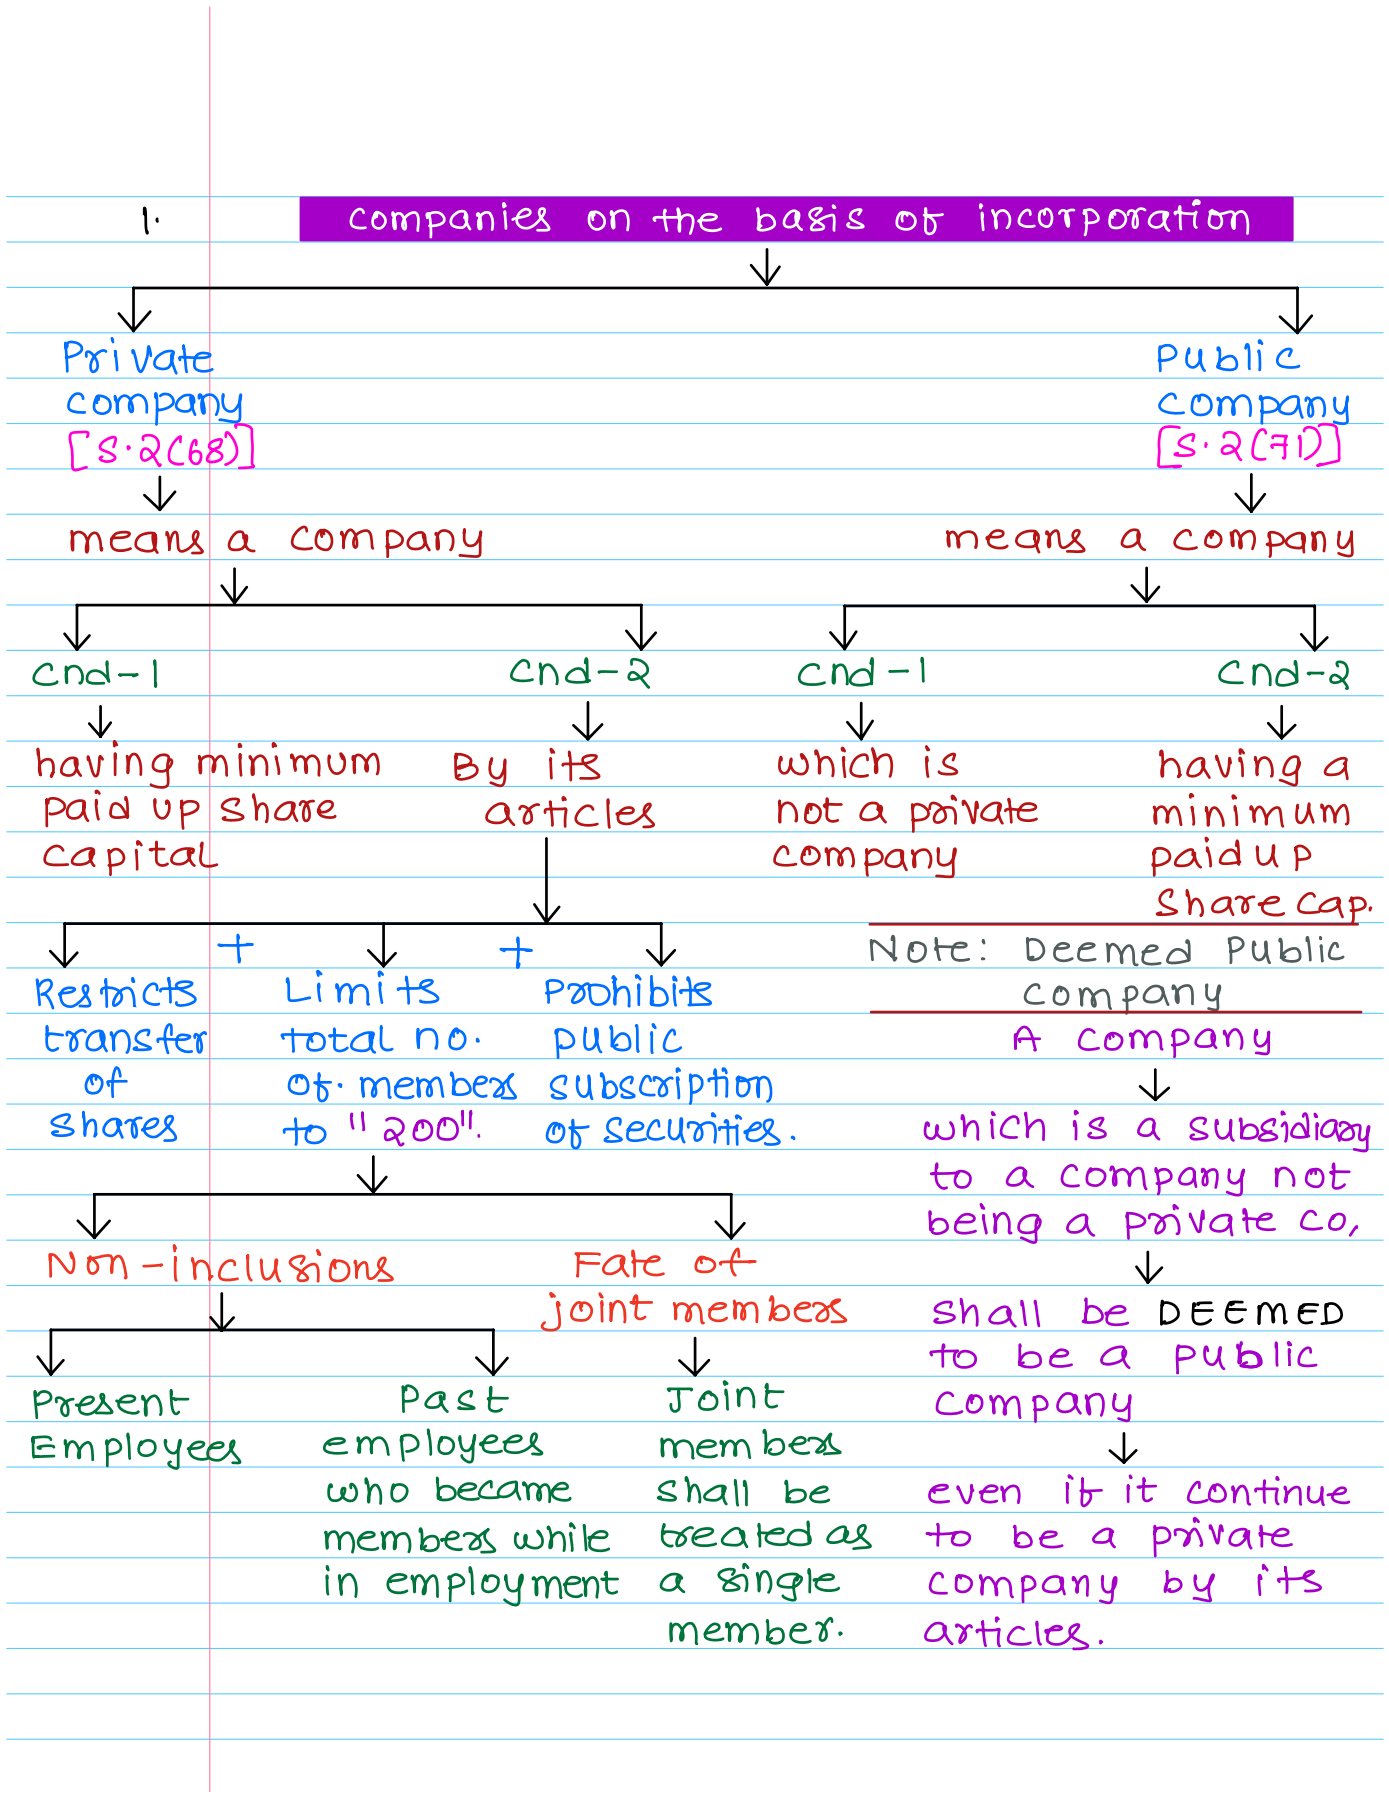 1. companies on the basis of incorporation
Private
company
[S.2(68)]
means a company
Cnd-1
having minimum
paid up share
capital
Cnd-2
By its
articles
Restricts
transfer
of
shares
+
Limits
total no.
of. members
to "200".
+
Prohibits
public
subscription
of securities.
Non-inclusions
Present
Employees
Past
employees
who became
members while
in employment
Fate of
joint members
Joint
members
shall be
treated as
a single
member.
Public
company
[S.2(71)]
means a company
Cnd-1
which is
not a private
company
Cnd-2
having a
minimum
paid up
share cap.
Note: Deemed Public
company
A company
which is a subsidiary
to a company not
being a private co,
shall be DEEMED
to be a public
company
even if it continue
to be a private
company by its
articles.